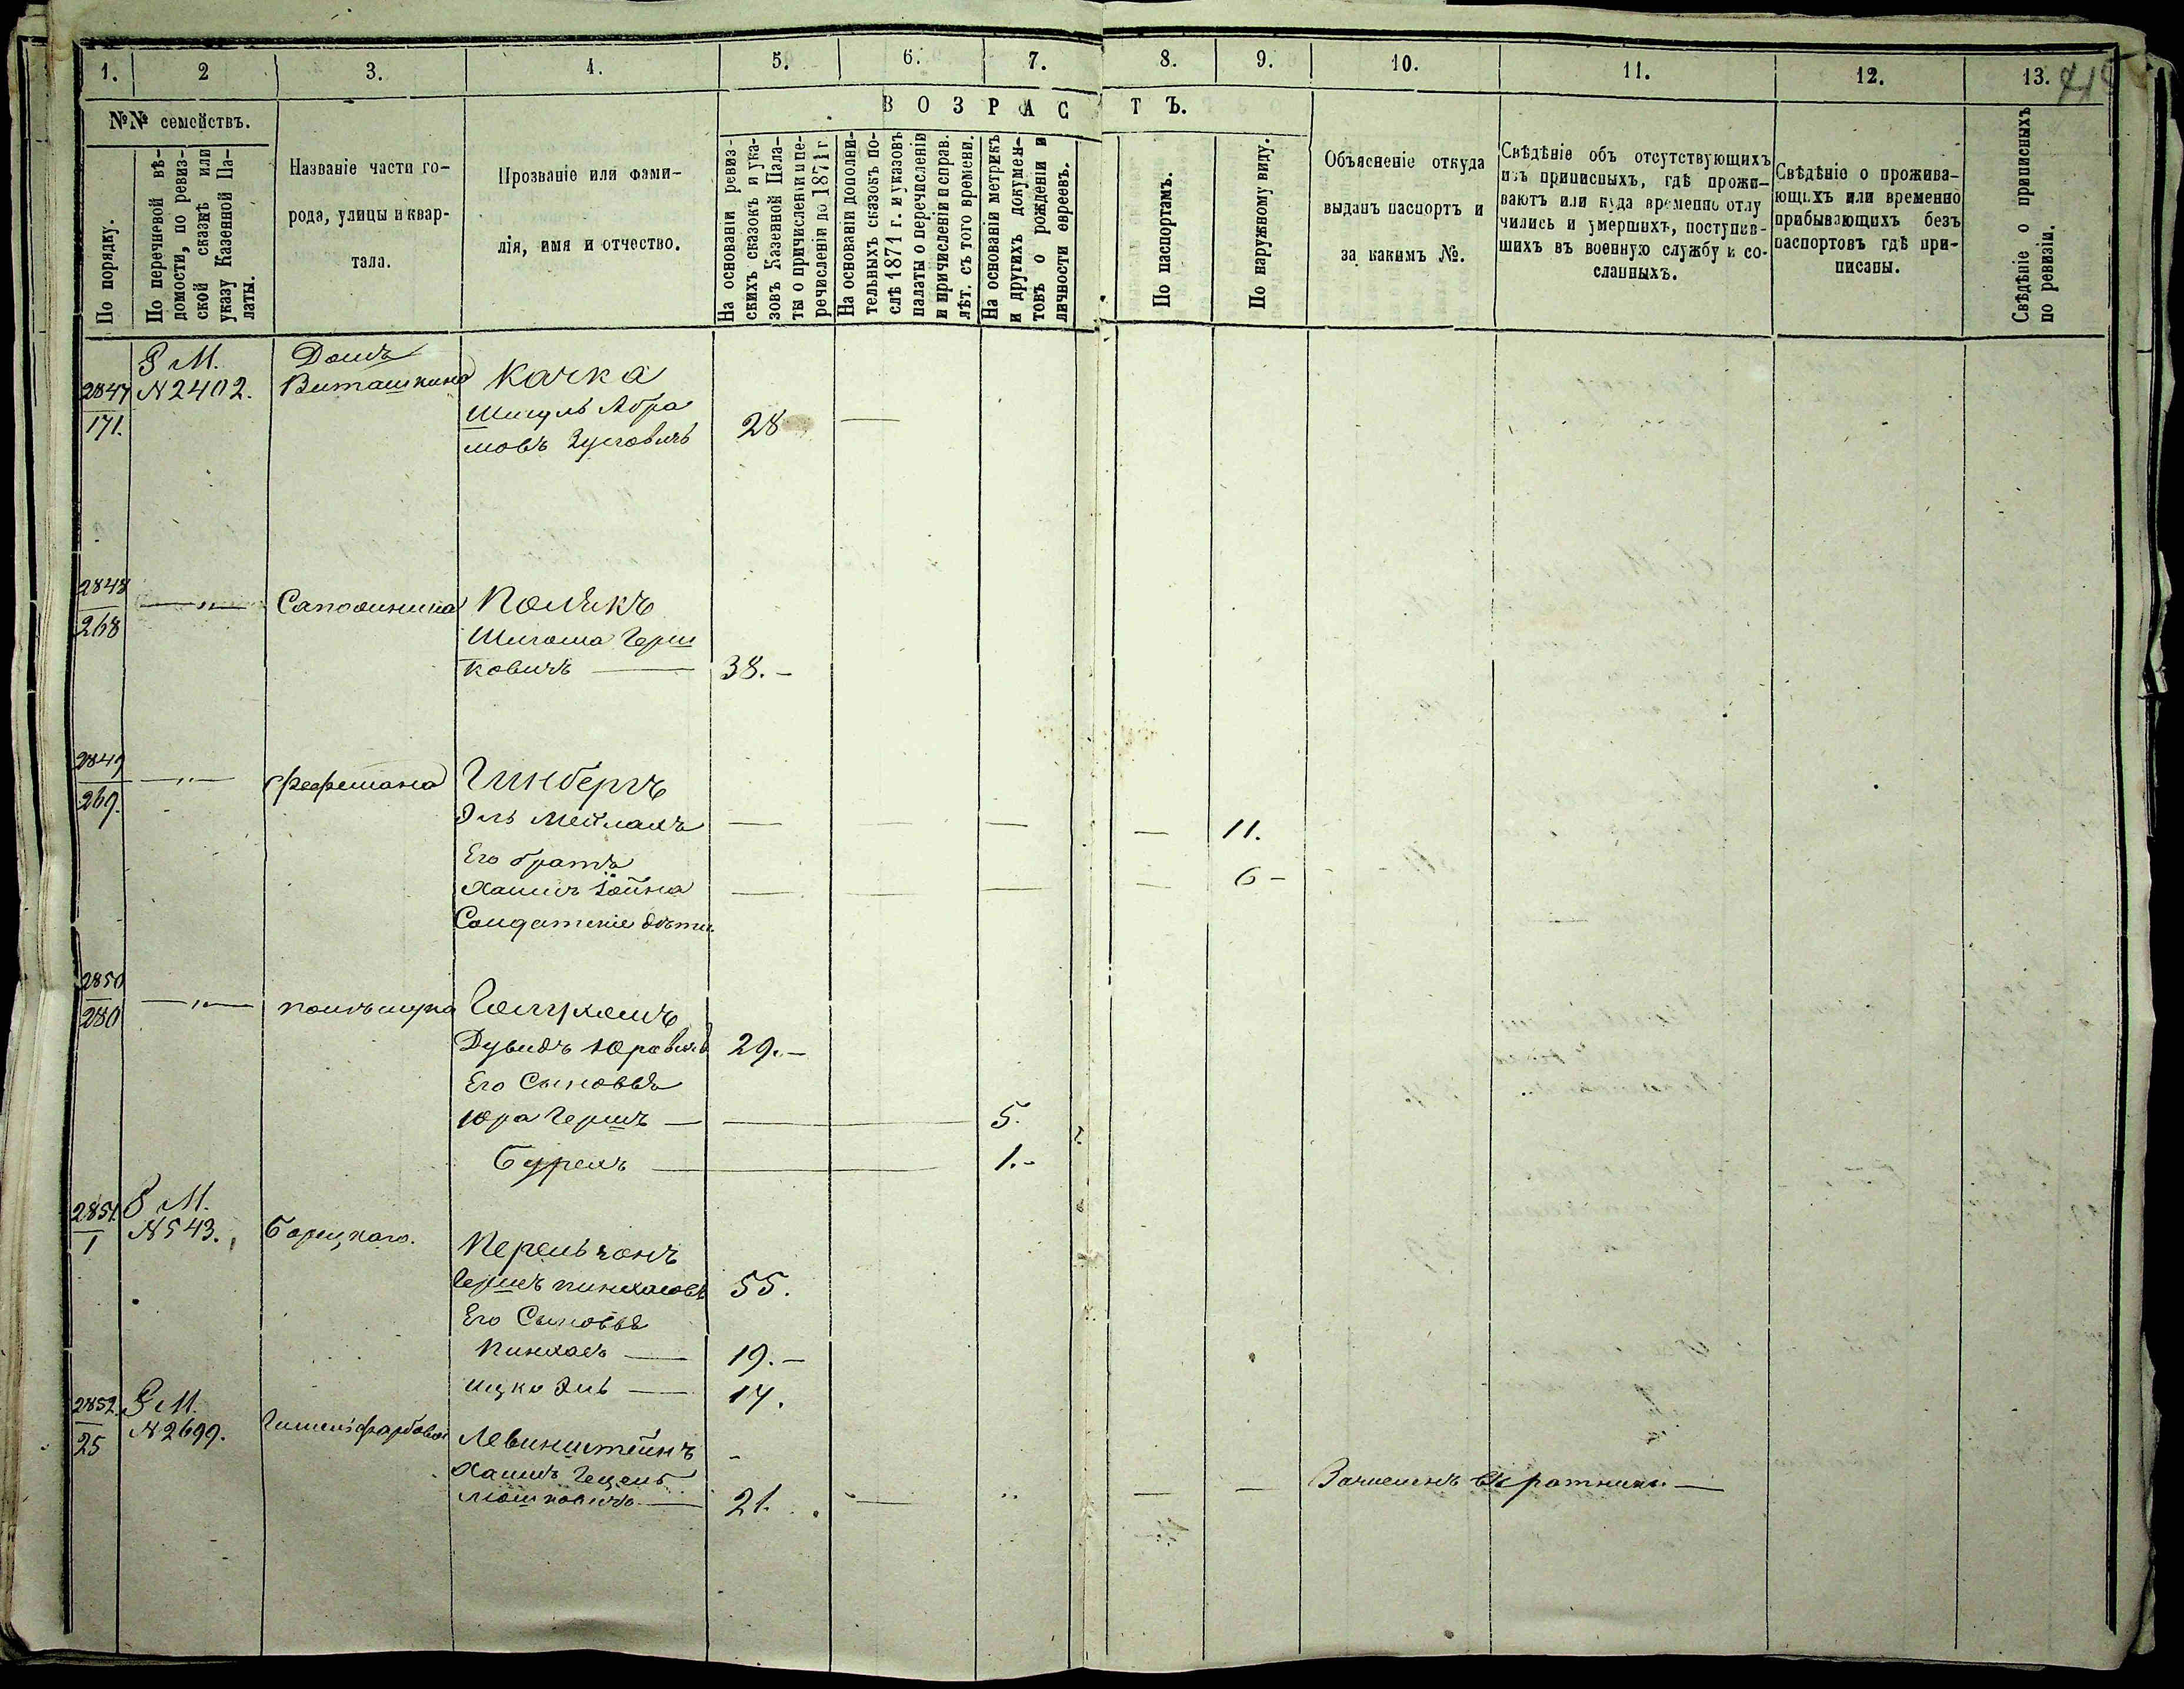 1. 2 3. 4. 5. 6. 7. 8. 9. 10. 11. 12. 13.
ВОЗРАСТЪ.
№№ семействъ.
По порядку.
По перечневой вѣ-
домости, по ревиз-
ской сказкѣ или
указу Казенной Па-
латы.
Названіе части го-
рода, улицы и квар-
тала.
Прозваніе или фами-
лія, имя и отчество.
На основаніи ревиз-
скихъ сказокъ и ука-
зовъ Казенной Пала-
ты о причисленіи и пе-
речисленіи до 1871 г.
На основаніи дополни-
тельныхъ сказокъ по-
слѣ 1871 г. и указовъ
палаты о перечисленіи
и причисленіи и справ.
лѣт. съ того времени.
На основаніи метрикъ
и другихъ докумен-
товъ о рожденіи и
личности евреевъ.
По паспортамъ.
По наружному виду.
Объясненіе откуда
выданъ паспортъ и
за какимъ №.
Свѣдѣніе объ отсутствующихъ
изъ приписныхъ, гдѣ прожи-
ваютъ или куда временно отлу
чились и умершихъ, поступив-
шихъ въ военную службу и со-
сланныхъ.
Свѣдѣніе о прожива-
ющихъ или временно
прибывающихъ безъ
паспортовъ гдѣ при-
писаны.
Свѣдѣніе о приписныхъ
по ревизіи.
Р М. Домъ
2847 N 2402. Виташкина Качка
171. Абра
мовъ 28 —
2848 —„— Полякъ
268 Герш
ковичъ — 38.-
2849 —„— Гинбергъ
269. Эль Мейлахъ — — — — 11.
Его братъ
Хаимъ Іойна — — — — 6 -
Солдатскіе дѣти
2850
280 —„—
Дувидъ Юровичъ 29.-
Его Сыновья
Юра Гершъ — — 5.
— 1.-
2851. Р М.
1 N 543. Борецкаго. Перельчонъ
Гершъ Пинхасовъ 55.
Его Сыновья
Пинхасъ — 19.-
Ицко Эль — 14.
2852. Р М.
25 N 2699. Левинштейнъ -
Хаимъ Гецель
Мошковичъ — 21. — — — Зачисленъ въ ратники —